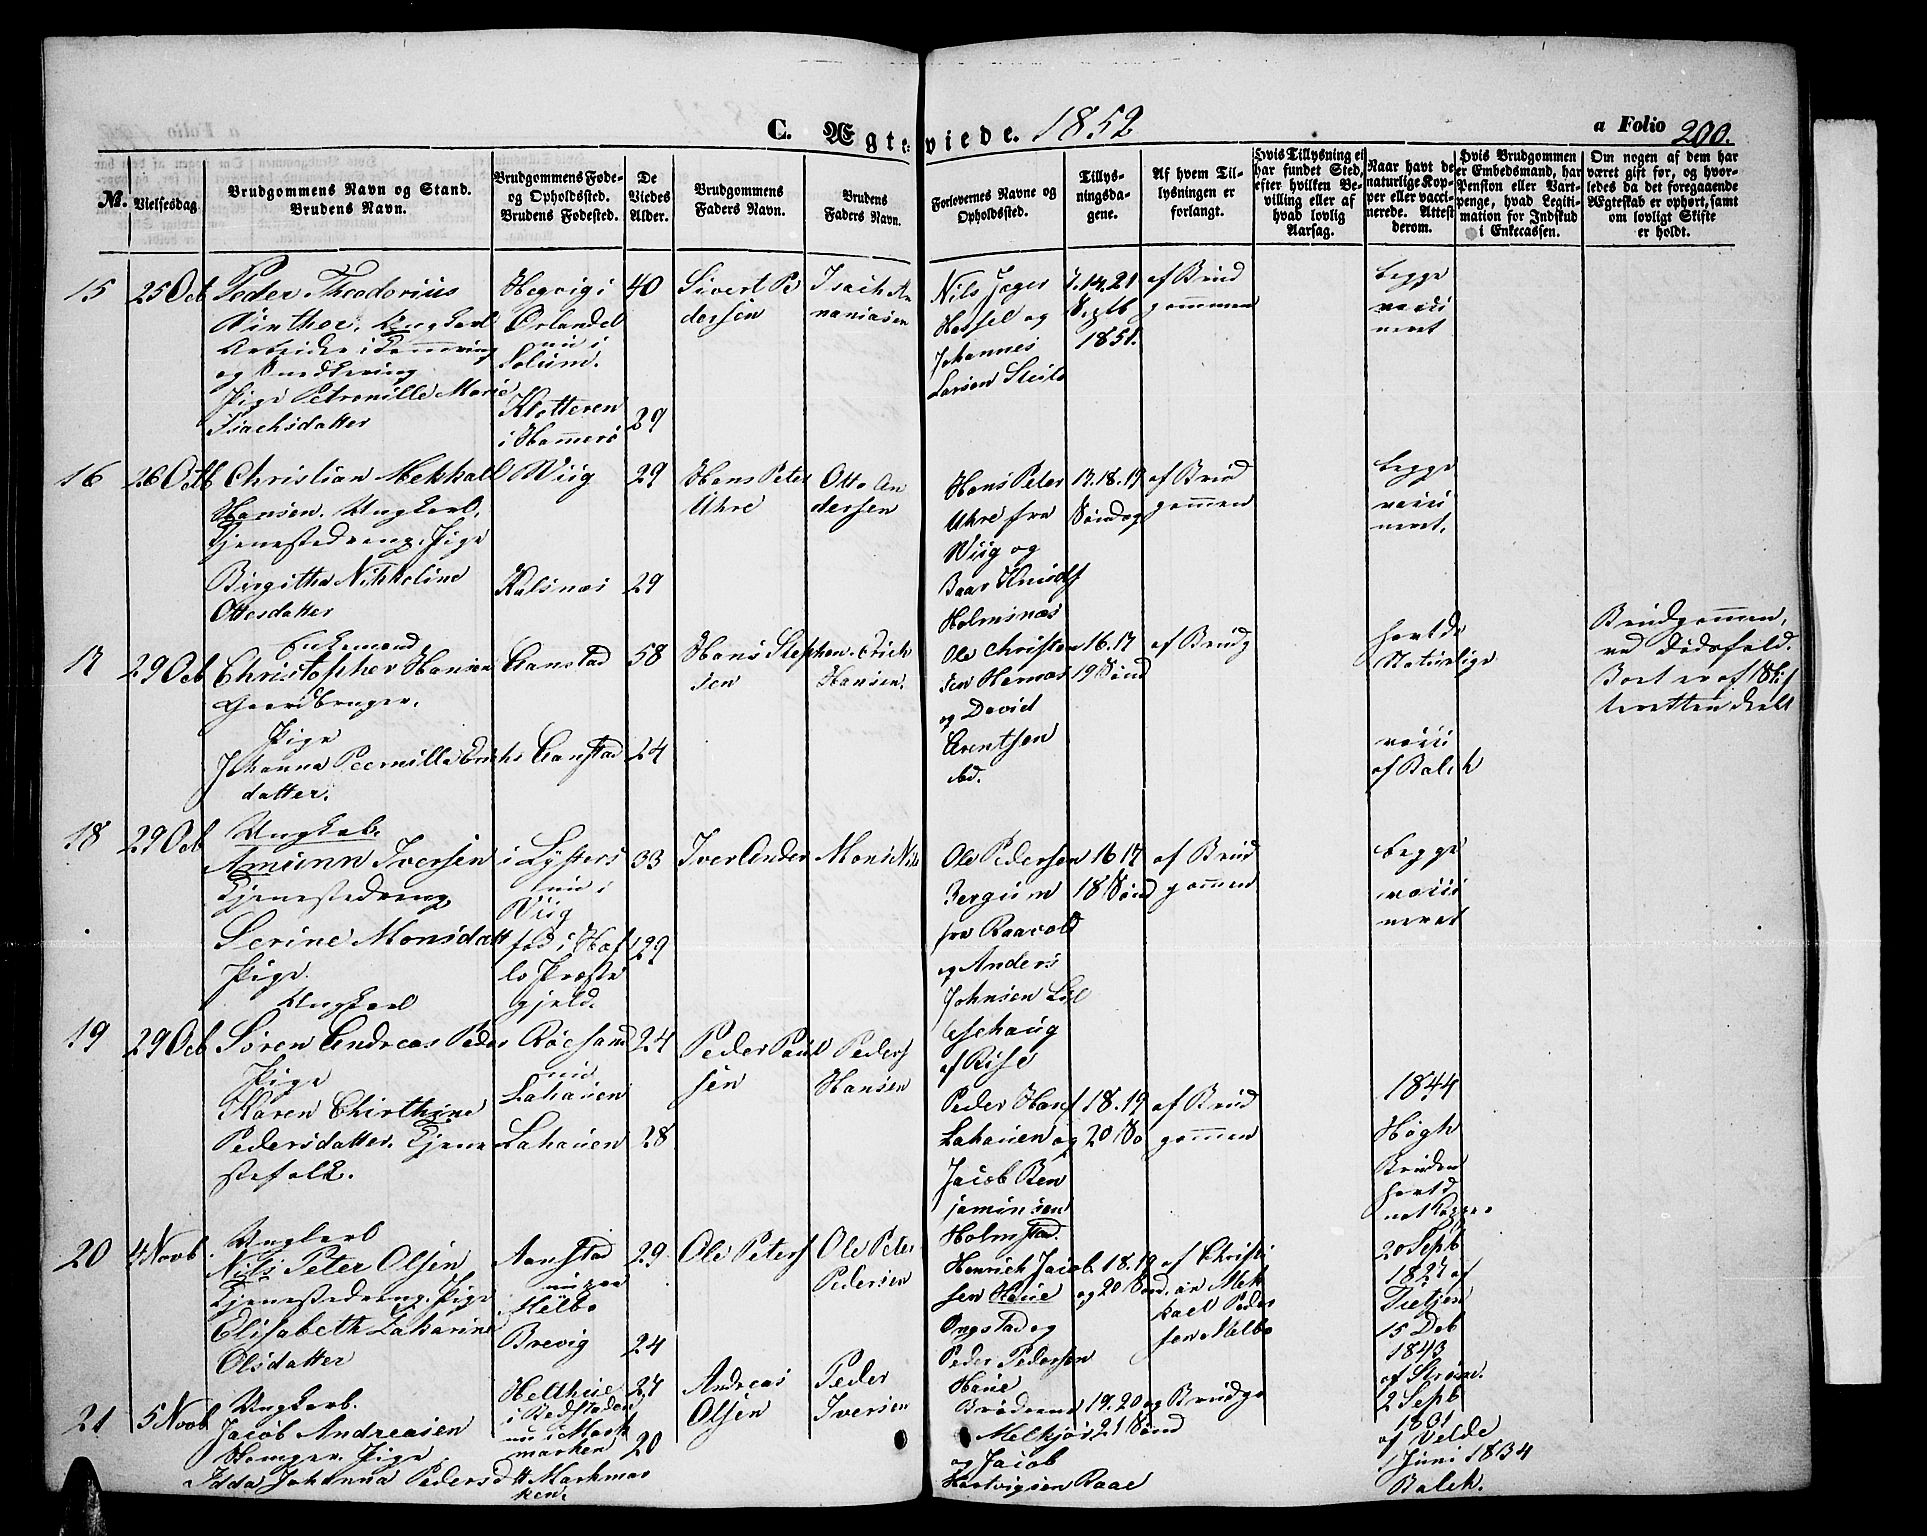 C. Ægteviede. 1852
a Folio 200.
No.
Vielsesdag
Brudgommens Navn og Stand.
Brudens Navn.
Brudgommens Føde-
og Opholdssted.
Brudens Fødested.
De
Viedes
Alder.
Brudgommens
Faders Navn.
Brudens
Faders Navn.
Forlovernes Navne og
Opholdssted.
Tillys-
ningsda-
gene.
Af hvem Til-
lysningen er
forlangt.
Hvis Tillysning ei
har fundet Sted,
efter hvilken Be-
villing eller af
hvad lovlig
Aarsag.
Naar havt de
naturlige Kop-
per eller vacci-
nerede. Attest
derom.
Hvis Brudgommen
er Embedsmand, har
Pension eller Vart-
penge, hvad Legiti-
mation for Indskud
i Enkecassen.
Om nogen af dem har
været gift før, og hvor-
ledes da det foregaaende
Ægteskab er ophørt, samt
om lovligt Skifte
er holdt.
15
25 Oct
Peder Theodorius
Winther, Ungkarl
og Snedkering
Pige Petronille Marie
Isachsdatter
Hegvig i
Ørlandet
nu i
Solum.
Klotteren
i Hamerø
40
29
Sivert Pe
dersen
Isach A
naniasen
Nils Jæger
Hassel og
Johannes
Larsen Steilo
7. 14. 21
Septb
1851.
af Brud
gommen
begge
vacci
neret
16
26 Octb
Christian Mekkall
Hansen. Ungkarl.
Tjenestedreng. Pige
Birgitha Nikkoline
Ottesdatter
Wiig
Kalsnæs
29
29
Hans Peter
Uhre
Otto An
dersen
Hans Peter
Uhre fra
Wiig og
Baar Knudsf
Holmsnæs
13. 18. 19
Søndag
af Brud
gommen
begge
vacci
neret.
17
29 Oct
Enkemand
Christopher Hansen
Gaardbruger.
Pige
Johanna Pernilla Erichs
datter.
Aanstad
Aanstad
58
24
Hans Stephen
sen
Erich
Hansen.
Ole Christen
sen Hernæs
og David
Arentsen
ibd.
16. 17
19 Sønd
af Brudg
havt de
Naturlige
vacci
af Balch
Brudgommen,
ved Dødsfald.
Boet er af Skif
teretten deelt
18
29 Oct
Ungkarl.
Amunn Iversen
Tjenestedreng
Serine Monsdatt
Pige
i Lysters
nu i
Wiig
fød i Haf
lo Præste
gjeld.
33
29
Iver Ander
Mons Nils
Ole Pedersen
Bergum
fra Raavold
og Anders
Johnsen Lil
leschaug
af Rise
16 17
18 Sønd
af Brud
gommen
begge
vacci
neret
19
29 Oct
Ungkarl
Søren Andreas Peders
Pige
Karen Chirthine
Pedersdatter. Tjene
stefolk.
Röesand
nu
Lahauen
Lahauen
24
28
Peder Paul
sen
Peders
Hansen
Peder Hans
Lahauen og
Jacob Ben
jaminsen
Holmstad.
18. 19
20 So
af Brud
gommen
1844
Høgh
Bruden
havt d
nat Kopper
20
4 Novb.
Ungkarl
Nils Peter Olsen
Tjenestedreng. Pige
Elisabeth Zakarine
Olsdatter
Aanstad
nu paa
Melbo
Brevig
29.
24
Ole Peters
Ole Peter
Pedersen
Henrich Jacob
sen Haue
Ongstad og
Peder Pedersen
Haue
18. 19
og 20 Sønd.
af Christi
an Mek
kael Peder
sen Melbo
20 Sept
1827 af
Tietjen
15 Deb
1843
af Strøm.
21
5 Novb
Ungkarl.
Jacob Andreasen
Pige
Idda Johanna Pedersd
Helthue
nu i Mark
marken
Markmar
ken.
27
20
Andreas
Olsen
Peder
Iversen
Brødrene
Melkjør
og Jacob
Hartvigsen Raae
19. 20 og
21 Sønd
Brudgo
2 Septb
1831
af Velde
1 Juni 1834
Balch.